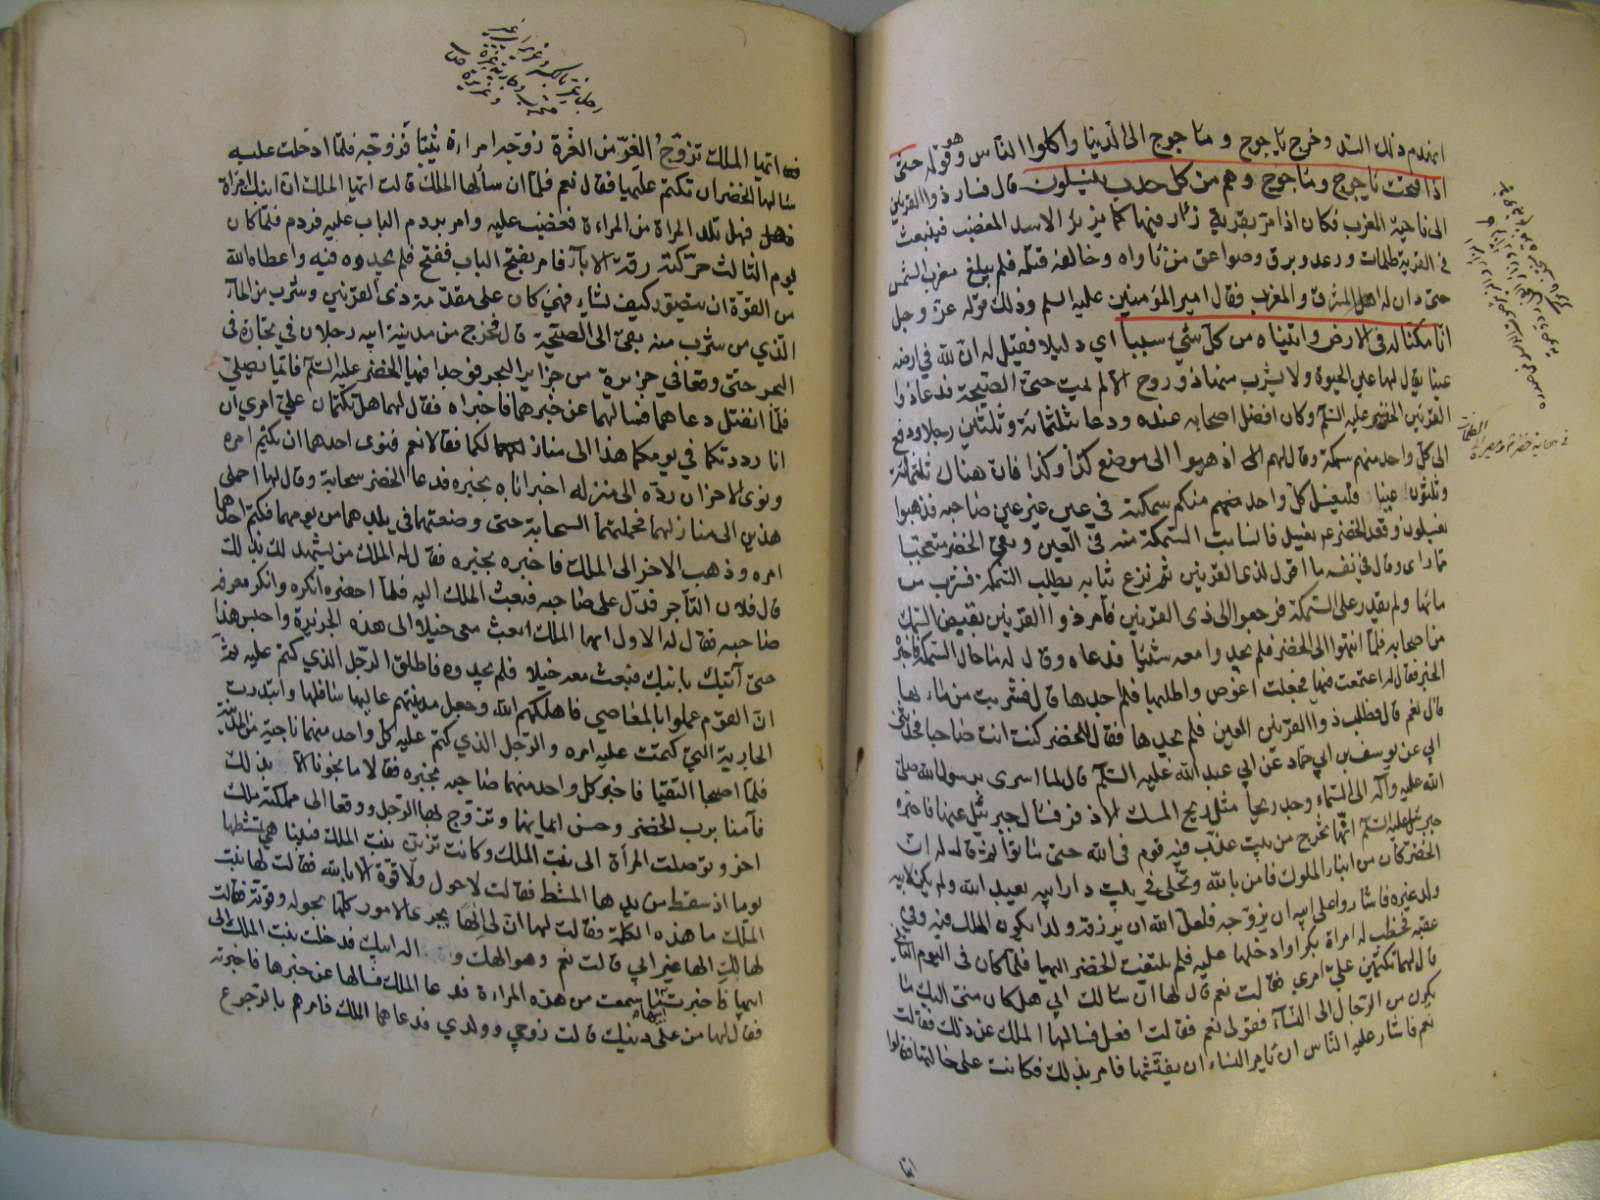 انهدم ذلك السد وخرج ياجوج و ماجوج الى الدنيا واكلوا الناس وهو قوله حتى
اذا فتحت ياجوج وماجوج وهم من كل حدب ينسلون قال فسار ذوالقرنين
الى ناحية المغرب فكان اذا مر بقرية زءر فيها كما يزءر الاسد المغضب فينبعث
في القرية ظلمات ورعد وبرق وصواعق من ناواه وخالفه فلم يبلغ مغرب الشمس
حتى دان له اهل المشرق والمغرب فقال امير المؤمنين عليه السلم وذلك قوله عز وجل
انا مكنا له في الارض واتيناه من كل شيء سببا اي دليلا فقيل له ان لله في ارضه
عينا يقال لها عين الحيوة ولا يشرب منها ذو روح الا لم يمت حتى الصيحة فدعا ذوا
القرنين الخضر عليه السلم وكان افضل اصحابه عنده ودعا بثلثمائة وثلثين رجلا ودفع
الى كل واحد منهم سمكة وقال لهم اذهبوا الى موضع كذا وكذا فان هناك ثلثمائة
وثلثون عينا فليغسل كل واحد منكم سمكته في عين غير عين صاحبه فذهبوا
يغسلون وقعد الخضر يغسل فانسابت السمكة منه في العين وبقى الخضر متعجبا
مما راى وقال في نفسه ما اقول لذى القرنين ثم نزع ثيابه يطلب السمكة فشرب من
مائها ولم يقدر على السمكة فرجعوا الى ذى القرنين فامر ذو القرنين بقبض السمك
من اصحابه فلما انتهوا الى الخضر فلم يجدوا معه شيئا فدعاه وقال له ما حال السمكة فاخبره
الخبر فقال له ماذا صنعت قال اغتمست فيها فجعلت اغوص واطلبها فلم اجدها قال فشربت من مائها
قال نعم قال فطلب ذوا القرنين العين فلم يجدها فقال للخضر كنت انت صاحبها حدثنى
ابي عن يوسف بن ابي حماد عن ابي عبد الله عليه السلم قال لما اسرى برسول الله صلى
الله عليه وآله الى السماء وجد ريحا مثل ريح المسك الاذفر فسأل جبرئيل عنها فاخبره
جبرئيل عليه السلم انها تخرج من بيت عذب فيه قوم في الله حتى ماتوا ثم قال له ان
الخضر كان من ابناء الملوك فامن بالله وتخلى في بيت دار ابيه يعبد الله ولم يكن لابيه
ولد غيره فاشاروا على ابيه ان يزوجه فلعل الله ان يرزقه ولدا يكون الملك فيه وفي
عقبه فخطب له امراة بكرا وادخلها عليه فلم يلتفت الخضر اليها فلما كان في اليوم الثاني
قال لها تكتمين علي امري فقالت نعم قال لها ان سالك ابي هل كان مني اليك ما
يكون من الرجال الى النساء فقولي نعم فقالت افعل فسالها الملك عن ذلك فقالت
نعم فاشار عليه الناس ان يامر النساء ان يفتشنها فامر بذلك فكانت على حالتها فقالوا
ايها
ايها الملك تزوج الغر من الغرة زوجه امراة ثيبا فزوجه فلما ادخلت عليه
سالها الخضر ان تكتم عليه امره فقال نعم فلما ان سألها الملك قالت ايها الملك ان ابنك امراة
فهل تلد المراة من المراءة فغضب عليه وامر بردم الباب عليه فردم فلما كان
يوم الثالث حركته رقة الاباء فامر بفتح الباب ففتح فلم يجدوه فيه واعطاه الله
من القوة ان يتصور كيف يشاء ثم كان على مقدمة ذى القرنين وشرب من الماء
الذي من شرب منه بقى الى الصيحة قال فخرج من مدينة ابيه رجلان في تجارة في
البحر حتى وقعا في جزيرة من جزاير البحر فوجدا فيها الخضر عليه السلم قائما يصلي
فلما انفتل دعاهما فسالهما عن خبرهما فاخبراه فقال لهما هل تكتمان علي امري ان
انا رددتكما في يومكما هذا الى منازلكما فقالا نعم فنوى احدهما ان يكتم امره
ونوى الاخر ان رده الى منزله اخبر اباه بخبره فدعا الخضر سحابة وقال لها احملى
هذين الى منازلهما فحملتهما السحابة حتى وضعتهما في بلدهما من يومهما فكتم احدهما
امره وذهب الاخر الى الملك فاخبره بخبره فقال له الملك من يشهد لك بذلك
قال فلان التاجر فدل على صاحبه فبعث الملك اليه فلما احضره انكره وانكر معرفة
صاحبه فقال له الاول ايها الملك ابعث معى خيلا الى هذه الجزيرة واحبس هذا
حتى آتيك بابنك فبعث معه خيلا فلم يجدوه فاطلق الرجل الذي كتم عليه ثم
ان القوم عملوا بالمعاصي فاهلكهم الله وجعل مدينتهم عاليها سافلها وابتدرت
الجارية التي كتمت عليه امره والرجل الذي كتم عليه كل واحد منهما ناحية من المدينة
فلما اصبحا التقيا فاخبر كل واحد منهما صاحبه بخبره فقالا ما نجونا الا بذلك
فآمنا برب الخضر وحسن ايمانهما وتزوج بها الرجل ووقعا الى مملكة ملك
اخر وتوصلت المرأة الى بنت الملك وكانت تزين بنت الملك فبينا هي تمشطها
يوما اذ سقط من يدها المشط فقالت لا حول ولا قوة الا بالله فقالت لها بنت
الملك ما هذه الكلمة فقالت لها ان لي الها يجرى الامور كلها بحوله وقوته فقالت
لها ألك اله غير ابي قالت نعم وهو الهك واله ابيك فدخلت بنت الملك الى
ابيها فاخبرت ابيها بما سمعت من هذه المراءة فدعا الملك فسالها عن خبرها فاخبرته
فقال لها من على دينك قالت زوجي وولدي فدعاهما الملك فامرهم بالرجوع